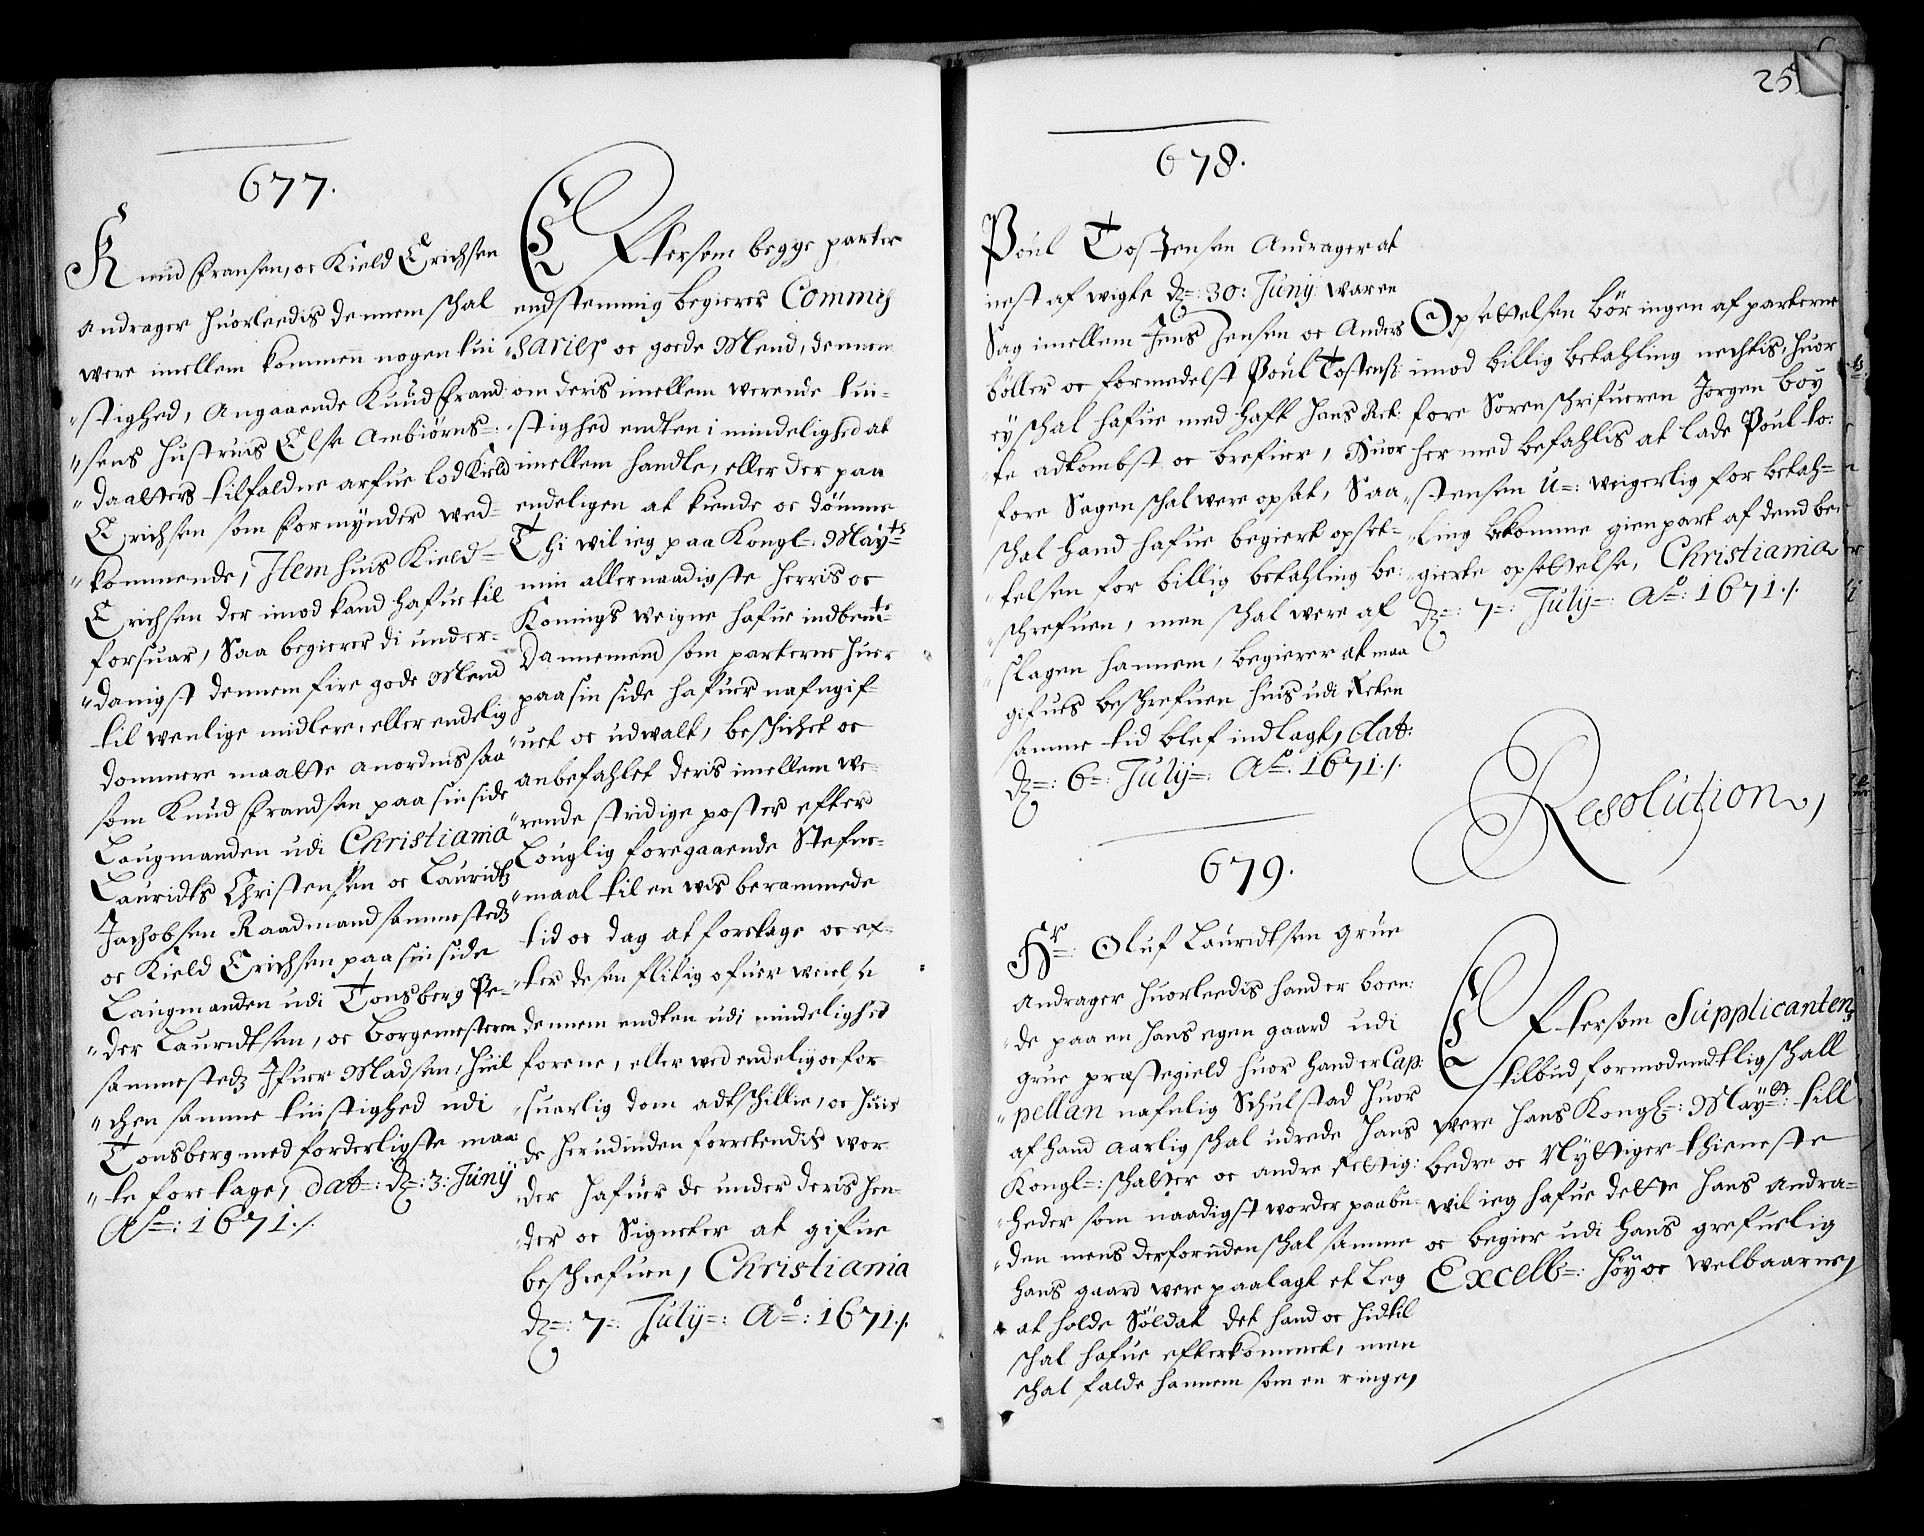 677.
Knud Fransen, oc Kield Erichsen
andrager huorleedis dennem schal
were imellem kommen nogen tui
"stighed, angaaende Knud Frand
"sens hustruis Else Ambiørns=
"daatters tilfaldne arfue lod Kield
Erichsen som formynder wed=
"kommende, Item huis Kield=
Erichsen der imod kand hafue til
forsuar, Saa begierer di under=
"danigst dennem fire gode Mend
til wenlige midlere, eller endelig
dommere maatte anordnis saa
som Knud Frandsen paa sin side
Laugmanden udi Christiania
Lauridts Christensen oc Lauridtz
Jachobsen Raadmand sammestedz
oc Kield Erichsen paa sin side
Laugmanden udi Tonsberg Pe=
"der Lauridtsen, oc borgemesteren
sammestedz Ifuer Madsen, huil
"chen samme tuistighed udi
Tonsberg med forderligste maa
"te foretage, dat=: Dz=: 3: Junij
Ao=: 1671./.
Eftersom begge parter
endstemmig begierer Commis
"sarier oc goede Mend, dennem
om deris imellem werende tui=
"stighed endten i mindelighed at
imellem handle, eller der paa
endeligen at kiende oc dømme
Thi wil ieg paa Kongl=: Mayts
min allernaadigste herris oc
Konings weigne hafue indbemte
Dannemend som parterne huer
paa sin side hafuer nafngif=
"uet oc udwalt, beschichet oc
anbefahlet deris imellem we=
"rende stridige poster efter
Louglig foregaaende Stefne=
"maal til en wis berammede
tid oc dag at foretage oc ef=
"ter desen flitig ofuer weielse
dennem endten udi mindelighed
forene, eller wed endelig oc for
"suarlig dom adtschillie, oc huis
de herudinden foretendis wor=
"der hafuer de under deris hen=
"der oc Signeter at gifue
beschrefuen, Christiania
Dz=: 7=: Julij=: Ao=: 1671./.
25
678.
Poul Tostensen Andrager at
nest afwigte Dz=: 30: Junij waren
Sag imellem Jens Jensen oc Anders
böller oc formedelst Poul Tostens:
ey schal hafue med haft hans Ret
"te adkombst oc brefuer, Huor
fore Sagen schal were opsat, Saa
schal hand hafue begiert opset=
"telsen for billig betahling be:
"schrefuen, men schal were af
"slagen hannem, begierer at maa
gifues beschrefuen huis udi Retten
samme tid blef indlagt, dat:
Dz=: 6=: Julij=: Ao=: 1671./.
Opsettelsen bör ingen af parterne
imod billig betahling nechtis, huor
fore Sorenschrifueren Jorgen boy
her med befahlis at lade Poul to:
"stensen u=: weigerlig for betah=
"ling bekomme gienpart af dend be:
gierte opsettelse, Christiania
Dz=: 7=: Julij=: Ao=: 1671./.
Resolution,
679.
Hr=: Oluf Lauridtsen grue
andrager huorleedis hand er boen:
"de paa en hans egen gaard udi
grue præstegield huor hand er Cap:
"pellan nafnlig Schulstad huor
af hand aarlig schal udrede hans
Kongl=: schatter oc andre rettig:
"heder som naadigst worder paabu=
"den mens derforuden schal samme
hans gaard were paalagt et Leg
at holde Söldat det hand oc hidtil
schal hafue efterkommet, men
schal falde hannem som en ringe,
Eftersom Supplicantens
tilbud formodendtlig schall
were hans Kongl=: Mayts=: till
bedre oc Nyttiger thieneste
wil ieg hafue dette hans andra=
oc begier udi hans grefuelig
Excell=: höy oc welbaarne,